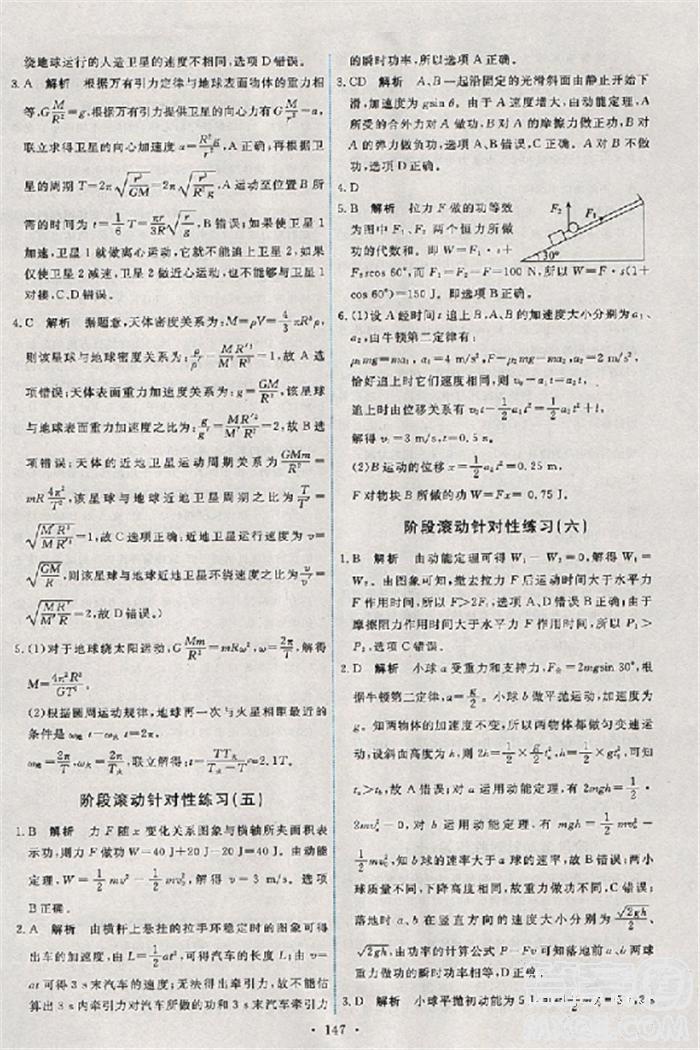 绕地球运行的人造卫星的速度不相等,选项D错误。
3. A 解析 根据万有引力定律与地球表面物体的重力相
等,G M/R² = g,根据万有引力提供卫星的向心力有G M/r² = a,
联立求得卫星的向心加速度 a = R²g/r²,A正确;卫星
的周期 T=2π√(r³/GM)=2π√(r³/R²g),运动至位置B所
需的时间为 t=1/6 T=π/3 √(r³/R²g),B错误;如果卫星1
加速,卫星1做离心运动,它就不能追上卫星2,如果
仅使卫星2减速,卫星2做近心运动,也不能与卫星1
对接,C、D错误。
4. C 解析 据题意,天体密度关系为:M=ρV=4/3 πR³ρ,
则该星球与地球密度关系为:ρ/ρ′=MR′³/M′R³=1,故A选
项错误;天体表面重力加速度关系为:g=GM/R²,该星球
与地球表面重力加速度之比为:g/g′=MR′²/M′R²=2,故B选
项错误;天体的近地卫星运动周期关系为:GMm/R²=
mR 4π²/T²,该星球与地球近地卫星运动周期之比为:
√(M′R³/MR′³)=1,故C选项正确;近地卫星运行速度为v=
√(GM/R),则该星球近地卫星与地球近地卫星环绕速度之比为:v/v′=
√(MR′/M′R)=2,故D错误。)
5. (1)对于地球绕太阳运动,G Mm/R²=mRω²,ω=2π/T,解得
M=4π²R³/GT²。
(2)根据圆周运动规律,地球再一次与火星相距最近的
条件是ω地t-ω火t=2π,
ω地=2π/T,ω火=2π/T火,联立求解得:t=TT火/(T火-T)=2.1T。
阶段滚动针对性练习(五)
1. B 解析 力F随x变化关系图象与横轴所夹面积表
示功,则力F做的功W=40J+20J-20J=40J。由动能
定理,W=1/2 mv²-1/2 mv₀²,解得:v=3m/s。选项
B正确。
2. A 解析 由横杆上悬挂的拉手环稳定时的图象可求得
出车的加速度,由L=1/2 at²,可求汽车的长度L。由于
汽车质量未知,不能得出汽车的牵引力,所以不能估算
3s内牵引力对汽车所做的功和3s末汽车牵引力
的瞬时功率,所以选项A正确。
3. CD 解析 A、B一起沿固定的光滑斜面由静止开始下
滑,加速度为gsin θ。由于A速度增大,由动能定理,A
所受的合外力对A做功,B对A的摩擦力做正功,B对
A的弹力做负功,选项C、D正确,A、B错误。
4. D
5. B 解析 拉力F做的功等效
为图中F₁、F₂两个恒力所做
功的代数和。即W=F₁·l+
F₂lcos 60°,而F₁=F₂=F=100 N,所以W=Fl(1+
cos 60°)=150 J,即选项B正确。
F₂ F₁ 30°
6. (1)设A经时间t追上B,A、B的加速度大小分别为a₁、
a₂,由牛顿第二定律有:
μ₁mg=ma₁,a₁=4 m/s²,F-μ₂mg=ma₂,a₂=2 m/s²
恰好追上时它们速度相同,则v₀-a₁t=a₂t
追上时由位移关系有v₀t-1/2 a₁t²=1/2 a₂t²+l
解得v₀=3 m/s,t=0.5 s。
(2)B运动的位移x=1/2 a₂t²=0.25 m,
F对物块B所做的功W=Fx=0.75 J。
阶段滚动针对性练习(六)
1. B 解析 由动能定理可得W₁-W₂=0,解得W₁=
W₂。由图象可知,撤去拉力F后运动时间大于水平力
F作用时间,所以F>2Fᶠ,选项B正确,A错误;由于
摩擦阻力作用时间大于水平力F作用时间,所以P₁>
P₂,选项C错误。
2. D 解析 小球a受重力和支持力,F合=2mgsin 30°,根
据牛顿第二定律,a=g/2。小球b做平抛运动,加速度为
g。知两物体的加速度不变,所以两物体都做匀变速运
动,设斜面高度为h,则2h=1/2×g/2×tₐ²,h=1/2 gt_b²,得
tₐ>t_b。对a运用动能定理有:2mgh=1/2×2mvₐ²,得vₐ=
√2gh,对b运用动能定理有:mgh=1/2 mv_b²-
1/2 mv₀²,知b球的速率大于a球的速率。而两小
球质量不等,所以落地前瞬间两球的动能可能相同。
落地时a、b在竖直方向的速度分别为:√2gh/2、
√2gh,由功率的计算公式P=Fv可知落地前a、b两球
重力做功的瞬时功率相等。
3. D 解析
· 147 ·